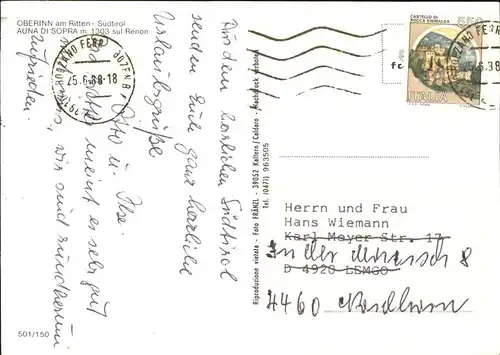 OBERINN am Ritten - Südtirol
AUNA DI SOPRA m. 1303 sul Renon
Aus dem herrlichen Südtirol
senden Euch ganz herzliche
Urlaubsgrüße
Otto u. Ilse.
meint es sehr gut
wir sind rundherum
zufrieden.
501/150
Riproduzione vietata - Foto FRÄNZL - 39052 Kaltern/Caldaro - Nachdruck verboten
Tel. (0471) 963505
BOLZANO FERR. BOZEN B.
25.6.88-18
CASTELLO DI
ROCCA SINIBALDA
550
ITALIA
Herrn und Frau
Hans Wiemann
Karl Meyer Str. 17
In der
8
D 4920 LEMGO
4460 Nordhorn